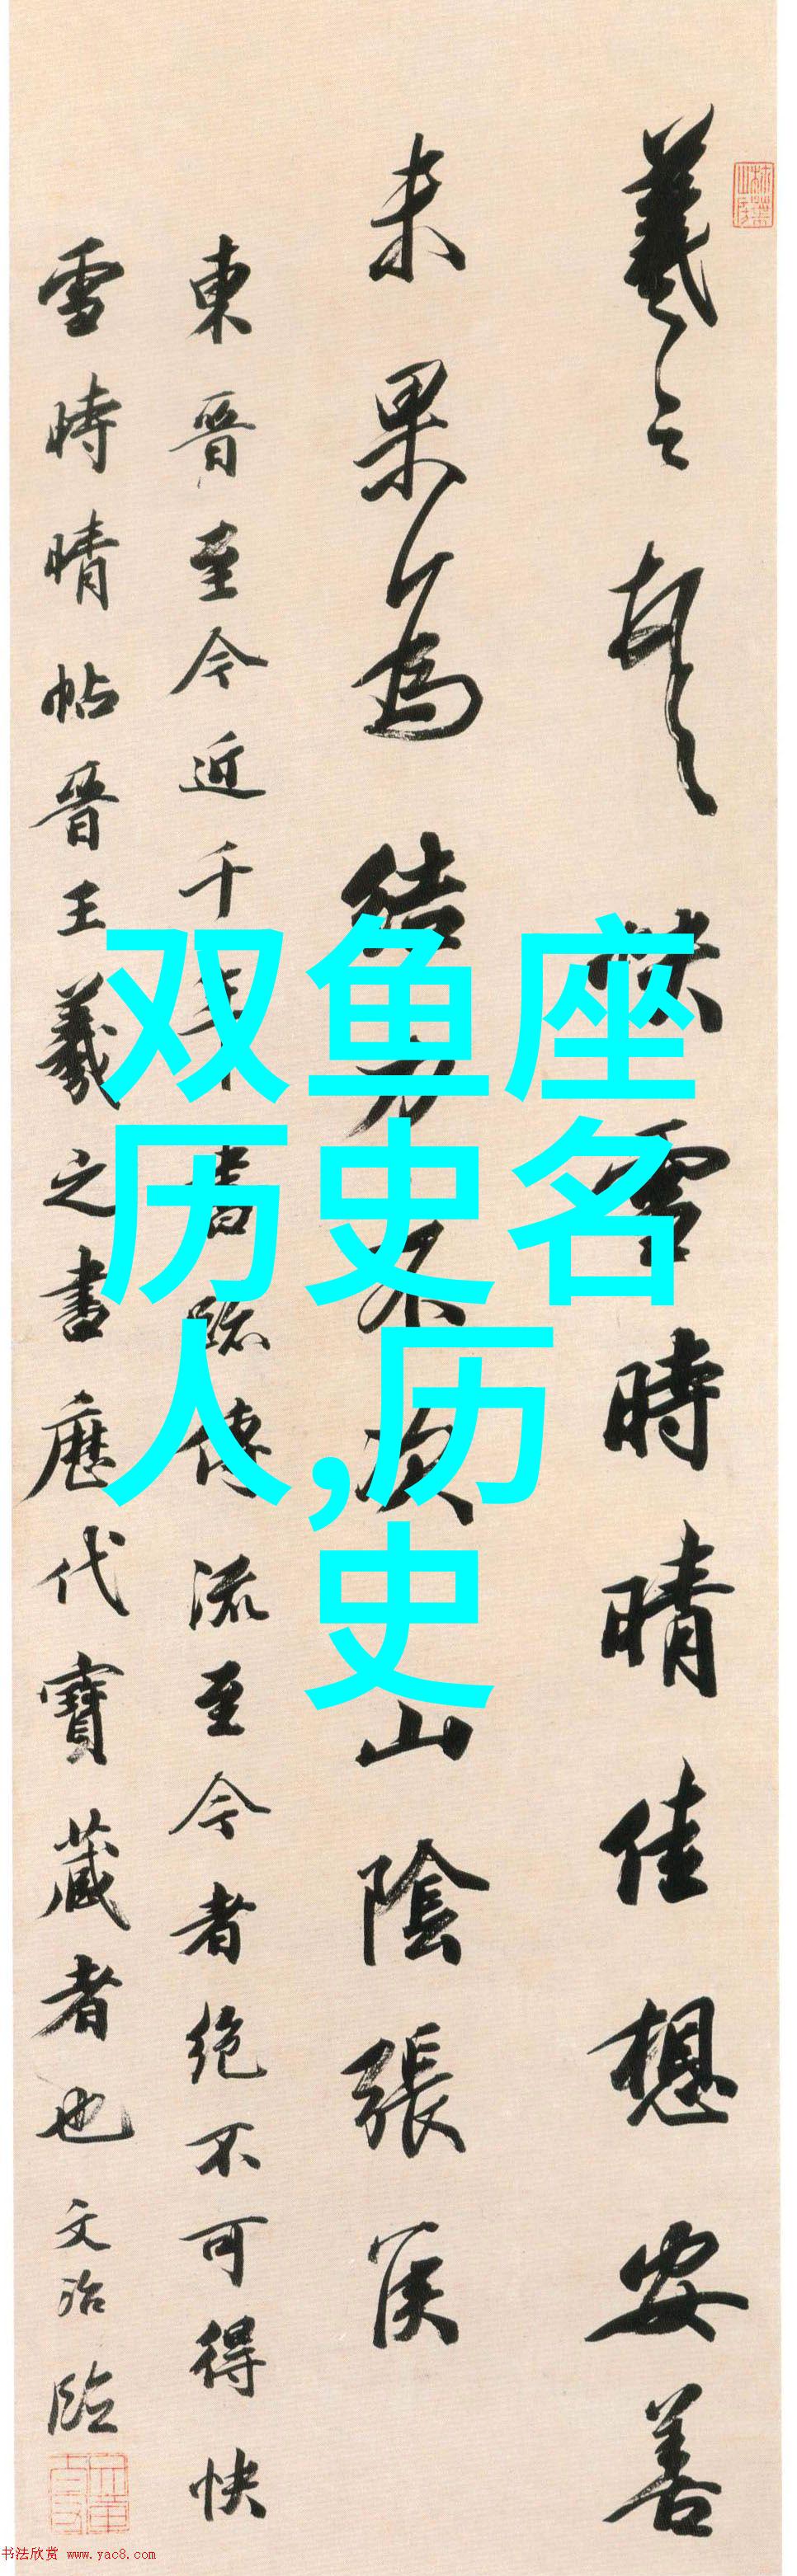 羲之頓首快雪時晴佳想安善
未果為結力不次山陰張侯
東晉至今近千年書跡傳流至今者絕不可得快
雪時晴帖晉王羲之書歷代寶藏者也文治臨
双鱼座
历史名
人,历
史
书法欣赏 www.yac8.com